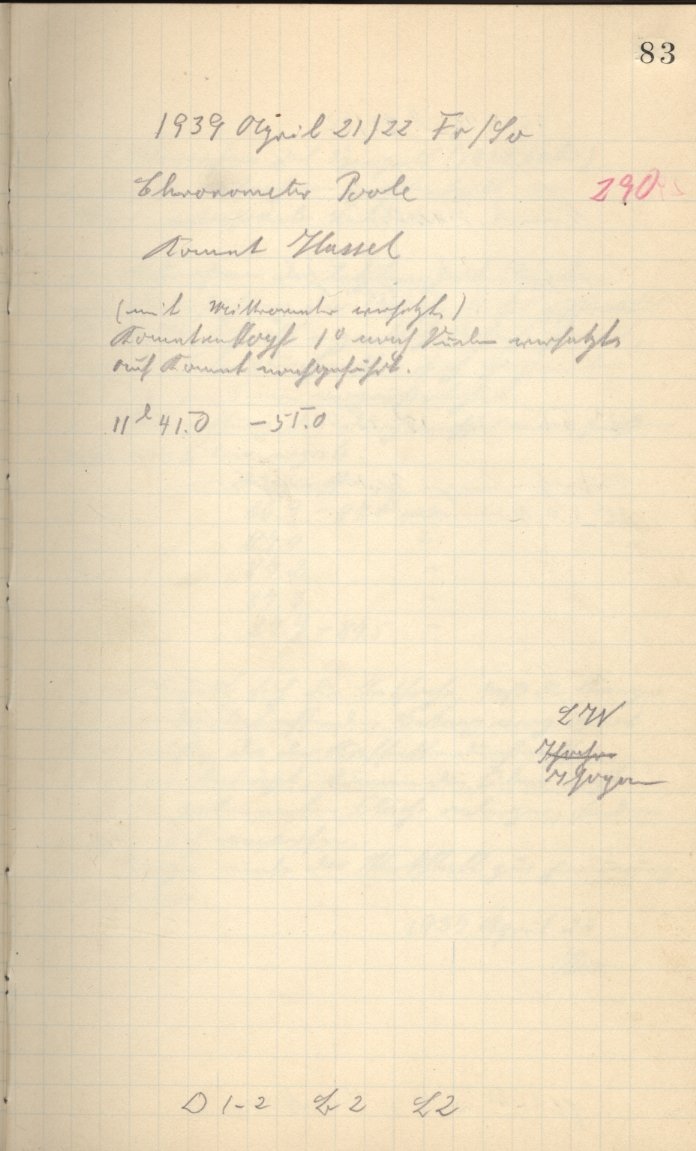 83
1939 April 21/22 Fr/So
Chronometer Poole
290
Komet Hassel
(mit Mikrometer versetzt)
Kometenkopf 1° nach Süden versetzt
auf Komet nachgeführt.
11h 41.0 -51.0
D 1-2 L 2